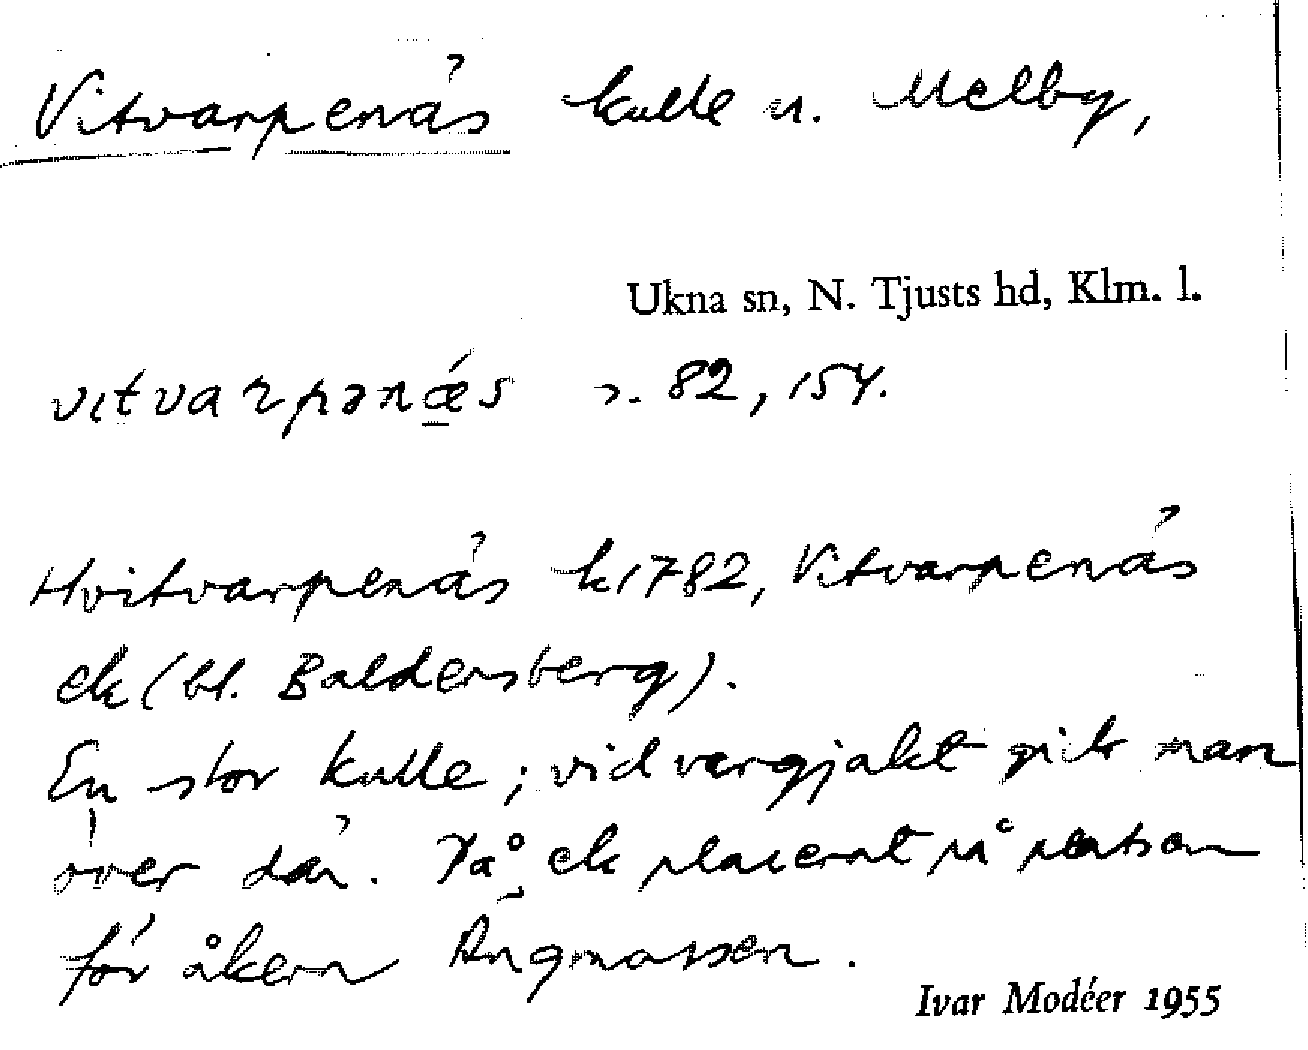 Vitvarpenäs kulle n. Melby,
Ukna sn, N. Tjusts hd, Klm. l.
vɪtvarpənǽs 82, 154.
Hvitvarpenäs k1782, Vitvarpenäs
ek (bl. Baldersberg).
En stor kulle; vid vargjakt gick man
över där. På ek placerat på platsen
för åkern Ängmossen.
Ivar Modéer 1955